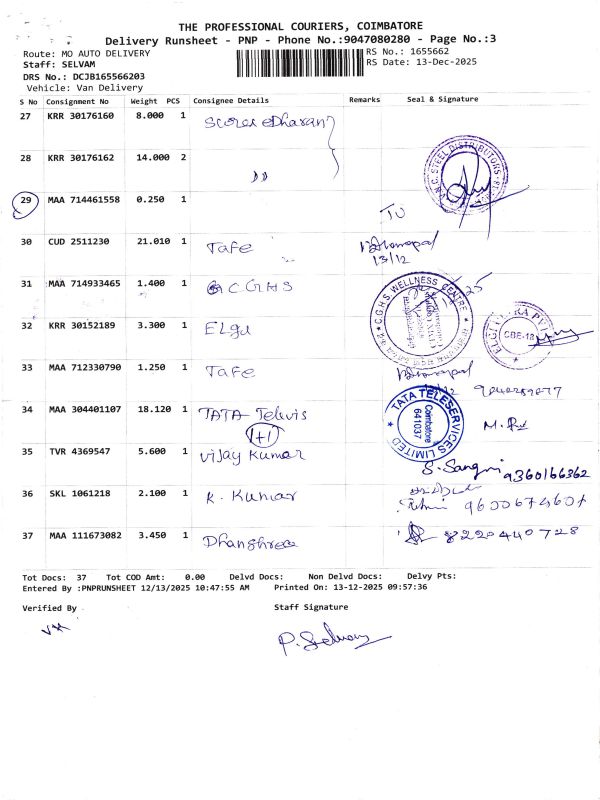 THE PROFESSIONAL COURIERS, COIMBATORE
Delivery Runsheet - PNP - Phone No.:9047080280 - Page No.:3
Route: MO AUTO DELIVERY
RS No.: 1655662
Staff: SELVAM
RS Date: 13-Dec-2025
DRS No.: DCJB165566203
Vehicle: Van Delivery
S No Consignment No Weight PCS Consignee Details Remarks Seal & Signature
27 KRR 30176160 8.000 1
28 KRR 30176162 14.000 2 ”
29 MAA 714461558 0.250 1
30 CUD 2511230 21.010 1 Tafe
13/12
31 MAA 714933465 1.400 1 CGHS
C.G.H.S WELLNESS CENTRE
32 KRR 30152189 3.300 1 Elgi
CBE-18
33 MAA 712330790 1.250 1 Tafe
34 MAA 304401107 18.120 1 TATA Televis
1+1
TATA TELESERVICES LIMITED
Coimbatore
641037
35 TVR 4369547 5.600 1 Vijay Kumar
9360166362
36 SKL 1061218 2.100 1 R. Kumar
9600674607
37 MAA 111673082 3.450 1
8220440728
Tot Docs: 37 Tot COD Amt: 0.00 Delvd Docs: Non Delvd Docs: Delvy Pts:
Entered By :PNPRUNSHEET 12/13/2025 10:47:55 AM Printed On: 13-12-2025 09:57:36
Verified By Staff Signature
P. Selvam